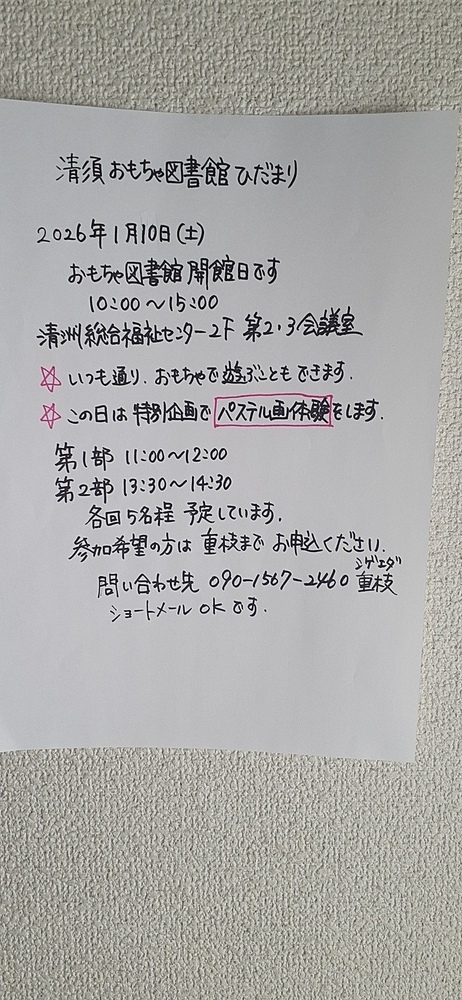 清須おもちゃ図書館ひだまり
2026年1月10日(土)
おもちゃ図書館開館日です
10:00～15:00
清洲総合福祉センター2F 第2・3会議室
☆いつも通り、おもちゃで遊ぶこともできます。
☆この日は特別企画でパステル画体験をします。
第1部 11:00～12:00
第2部 13:30～14:30
各回5名程 予定しています。
参加希望の方は 重枝まで お申込ください。
シゲエダ
問い合わせ先 090-1567-2460 重枝
ショートメール OKです。